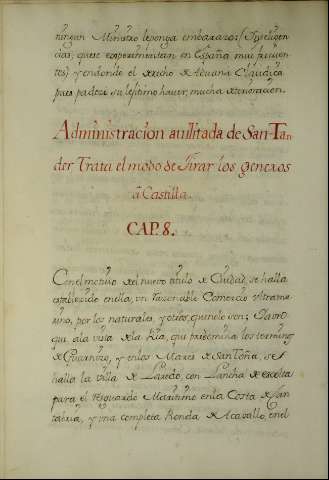 ningun Ministro leponga embarazos (Inteligen
cias, quese experimentan en España mui frecuen
tes) y endonde el derecho de Aduana Claudica
pues padeze su lexitimo haver, mucha extenuacion.
Administracion auilitada de San-Tan
der Trata el modo de Tirar los generos
â Castilla.
CAP. 8.
Conel motivo del nuevo titulo de Ciudad, se halla
establezido enella, un razonable Comercio Ultrama
rino, por los naturales, y otros
ala vista dela Ria, qui predomina los terminos
de y enlos Mares de SanToña, se
halla la villa de Laredo, con Lancha de escolta
para el resguardo Maritimo enla Costa de San
tabria, y una completa Ronda de Acavallo, enel